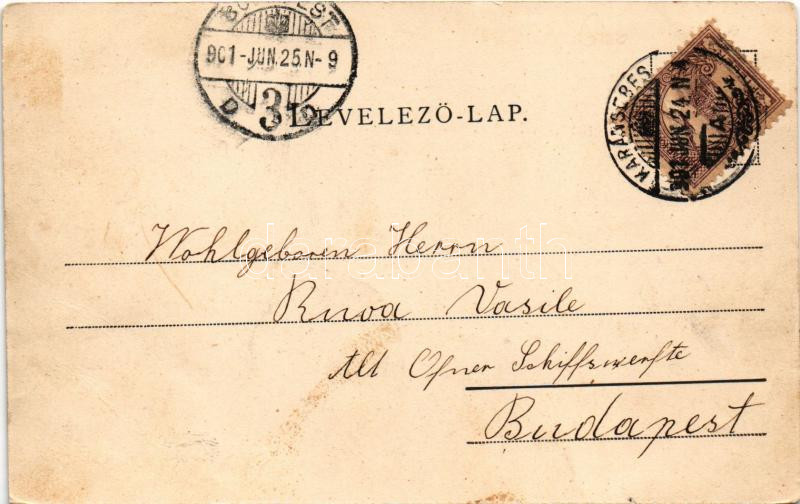 BUDAPEST
901-JUN.25.N-9
D 3
LEVELEZŐ-LAP.
KARÁNSEBES
901 JUN. 24. N
Wohlgeboren Herrn
Ruva Vasile
Alt Ofner Schiffswerfte
Budapest
darabanth